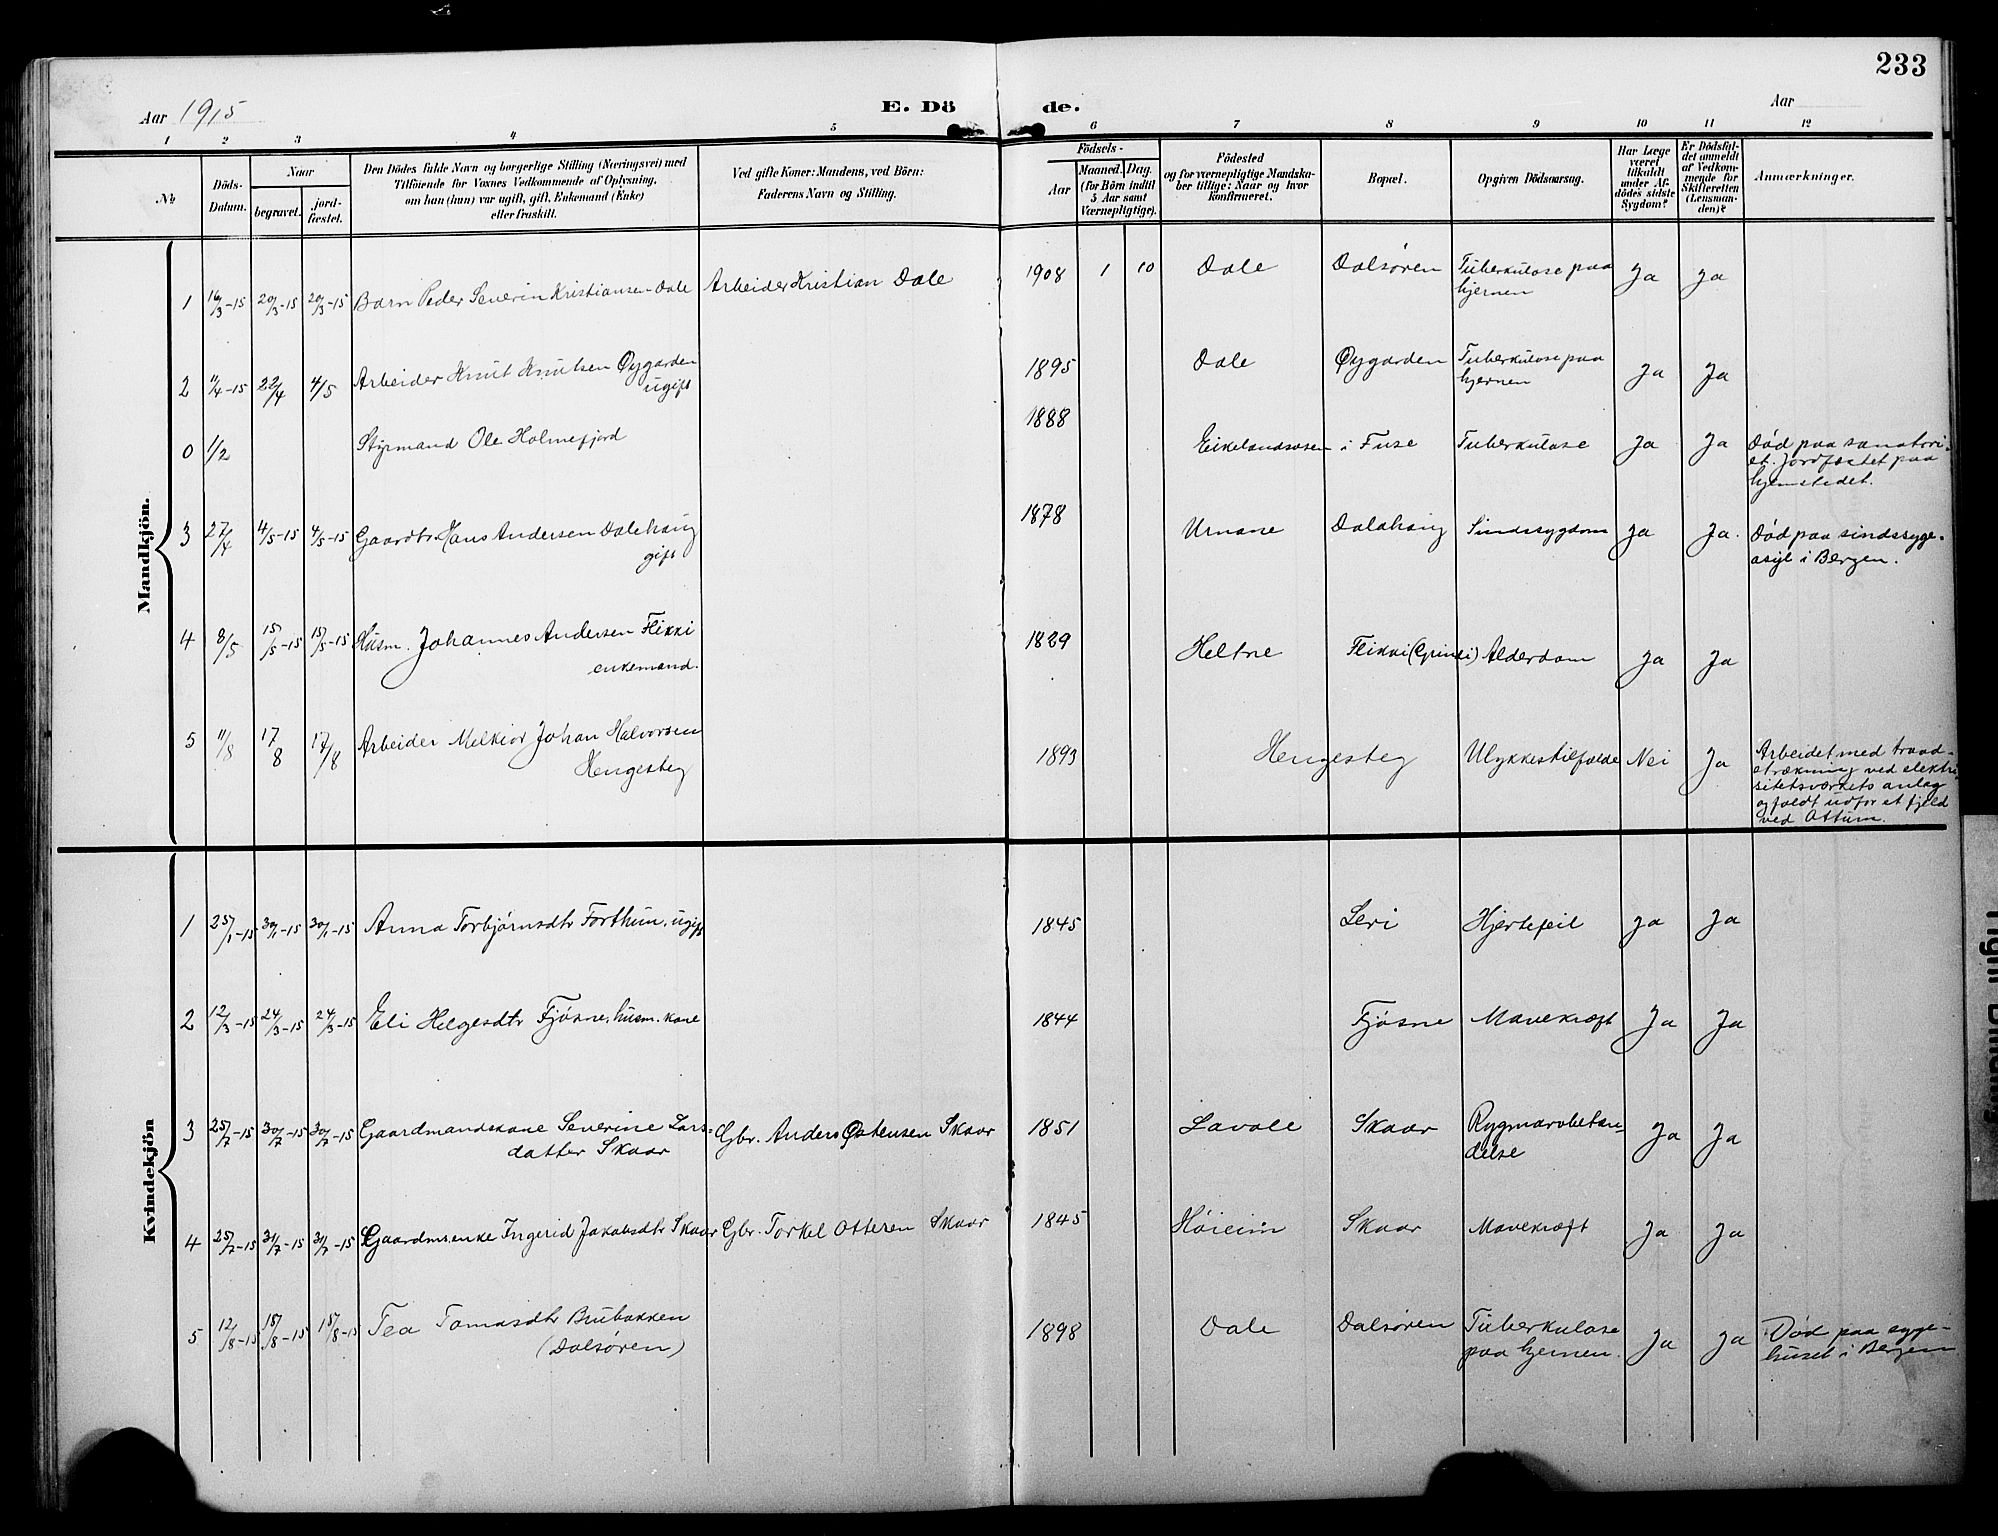 233
Aar 1915
E. Dö de.
Aar
1 2 3 4 5 6 7 8 9 10 11 12
No
Döds-
Datum.
Naar
begravet.
jord-
fæstet.
Den Dödes fulde Navn og borgerlige Stilling (Næringsvei) med
Tilföiende for Voxnes Vedkommende af Oplysning,
om han (hun) var ugift, gift, Enkemand (Enke)
eller fraskilt.
Ved gifte Koner: Mandens, ved Börn:
Faderens Navn og Stilling.
Födsels-
Aar
Maaned. Dag.
(for Börn indtil
5 Aar samt
Værnepligtige).
Födested
og for værnepligtige Mandska-
ber tillige: Naar og hvor
konfirmeret.
Bopæl.
Opgiven Dödsaarsag.
Har Læge
været
tilkaldt
under Af-
dödes sidste
Sygdom?
Er Dödsfal-
det anmeldt
af Vedkom-
mende for
Skifteretten
(Lensman-
den)?
Anmærkninger.
Mandkjön.
1 16/3-15 20/3-15 20/3-15 Barn Peder Severin Kristiansen Dale Arbeider Kristian Dale 1908 1 10 Dale Dalsøren Tuberkulose paa
hjernen Ja Ja
2 11/4-15 22/4 4/5 Arbeider Knut Knutsen Øygarden
ugift 1895 Dale Øygarden Tuberkulose paa
hjernen Ja Ja
0 1/2 Styrmand Ole Holmefjord 1888 Eikelandsosen i Fuse Tuberkulose Ja Ja Død paa sanatori-
et. Jordfæstet paa
hjemstedet.
3 27/4 4/5-15 4/5-15 Gaardbr. Hans Andersen Dalehaug
gift 1878 Urnane Dalahaug Sindssygdom Ja Ja. Død paa sindssyge-
asyl i Bergen.
4 8/5 15/5-15 15/5-15 Husm. Johannes Andersen Flikki
enkemand. 1829 Heltne Flikki Alderdom Ja Ja
5 11/8 17/8 17/8 Arbeider Melkior Johan Halvorsen
Hengesteg 1893 Hengesteg Ulykkestilfælde Nei Ja Arbeidet med traad-
strækning ved elektri-
sitetsverkets anlæg
og faldt udfor et fjeld
ved Ottum.
Kvindekjön
1 25/1-15 30/1-15 30/1-15 Anna Torbjørnsdtr Forthun, ugift 1845 Leri Hjertefeil Ja Ja
2 12/3-15 24/3-15 24/3-15 Eli Helgesdtr Fjøsne, husm. kone 1844 Fjøsne Mavekræft Ja Ja
3 25/7-15 30/7-15 30/7-15 Gaardmandskone Severine Lars-
datter Skaar Gbr. Anders Østensen Skaar 1851 Lavole Skaar Rygmarvbetæn-
delse Ja Ja
4 25/7-15 31/7-15 31/7-15 Gaardmsenke Ingerid Jakobsdtr Skaar Gbr. Torkel Ottesen Skaar 1845 Høieim Skaar Mavekræft Ja Ja
5 12/8-15 18/8-15 18/8-15 Tea Tomasdtr Brubakken
(Dalsøren) 1898 Dale Dalsøren Tuberkulose
paa hjernen. Ja Ja Død paa syge-
huset i Bergen